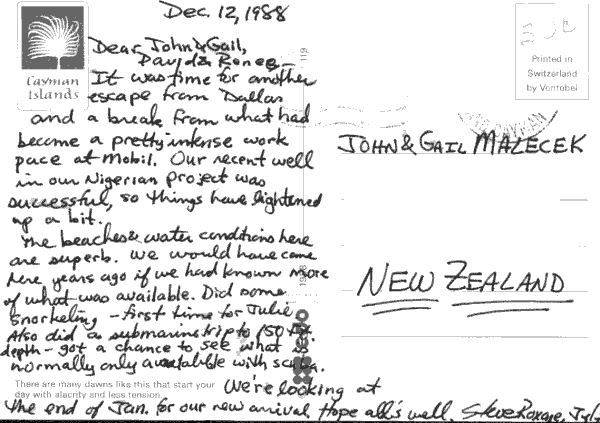 Dec. 12, 1988
Dear John & Gail,
David & Renee –
It was time for another
escape from Dallas
and a break from what had
become a pretty intense work
pace at Mobil. Our recent well
in our Nigerian project was
successful, so things have lightened
up a bit.
The beaches & water conditions here
are superb. We would have come
here years ago if we had known more
of what was available. Did some
snorkeling – first time for Julie.
Also did a submarine trip to 150 ft.
depth – got a chance to see what is
normally only available with scuba.
We're looking at
the end of Jan. for our new arrival. Hope all's well. Steve Roxane,
Cayman
Islands
There are many dawns like this that start your
day with alacrity and less tension.
Printed in
Switzerland
by Vontobel
JOHN & GAIL MALECEK
NEW ZEALAND